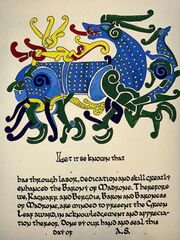 Let it be known that
has through labor, dedication and skill greatly
enhanced the Barony of Madrone. Therefore
we, Ragnarr and Bergdis, Baron and Baroness
of Madrone, are minded to present the Green
Leaf award, in acknowledgement and apprecia
tion thereof. Done by our hand and seal this
day of A.S.